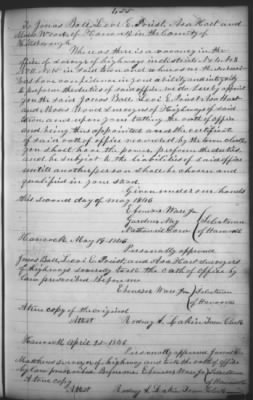 To Jonas Ball, Levi E. Priest, Asa Hart and
Moses Wood of Hancock in the County of
Hillsborough
Whereas there is a vacancy in the
office of surveys of highways in districts No 4. No 8
No 10. No 15 in said town and whereas the subscri-
bers have confidence in your ability and integrity
to perform the duties of said office, we do hereby appoint
you the said Jonas Ball, Levi E. Priest, Asa Hart
and Moses Wood surveyors of highways of said
town, and upon your taking the oath of office
and being thus appointed and the certificate
of said oath of office recorded by the town clerk,
you shall have the power, perform the duties
and be subject to the liabilities of said office
until another person shall be chosen and
qualified in your stead.
Given under our hands
this second day of May 1846
Ebenezer Ware Jr
Gardner Nay
Nathaniel
Selectmen
of Hancock
Hancock May 18 1846
Personally appeared
Jonas Ball, Levi E. Priest, and Asa Hart surveyors
of highways severally took the oath of office by
law prescribed. Before me
Ebenezer Ware Jr Selectman
of Hancock
A true copy of the original
Attest Rodney A. Lakin Town Clerk
Hancock April 25 1846.
Personally appeared
Matthews surveyor of highway and took the oath of office
by law prescribed. Before me Ebenezer Ware Jr Selectman
of Hancock
A true copy
Attest Rodney A. Lakin Town Clerk